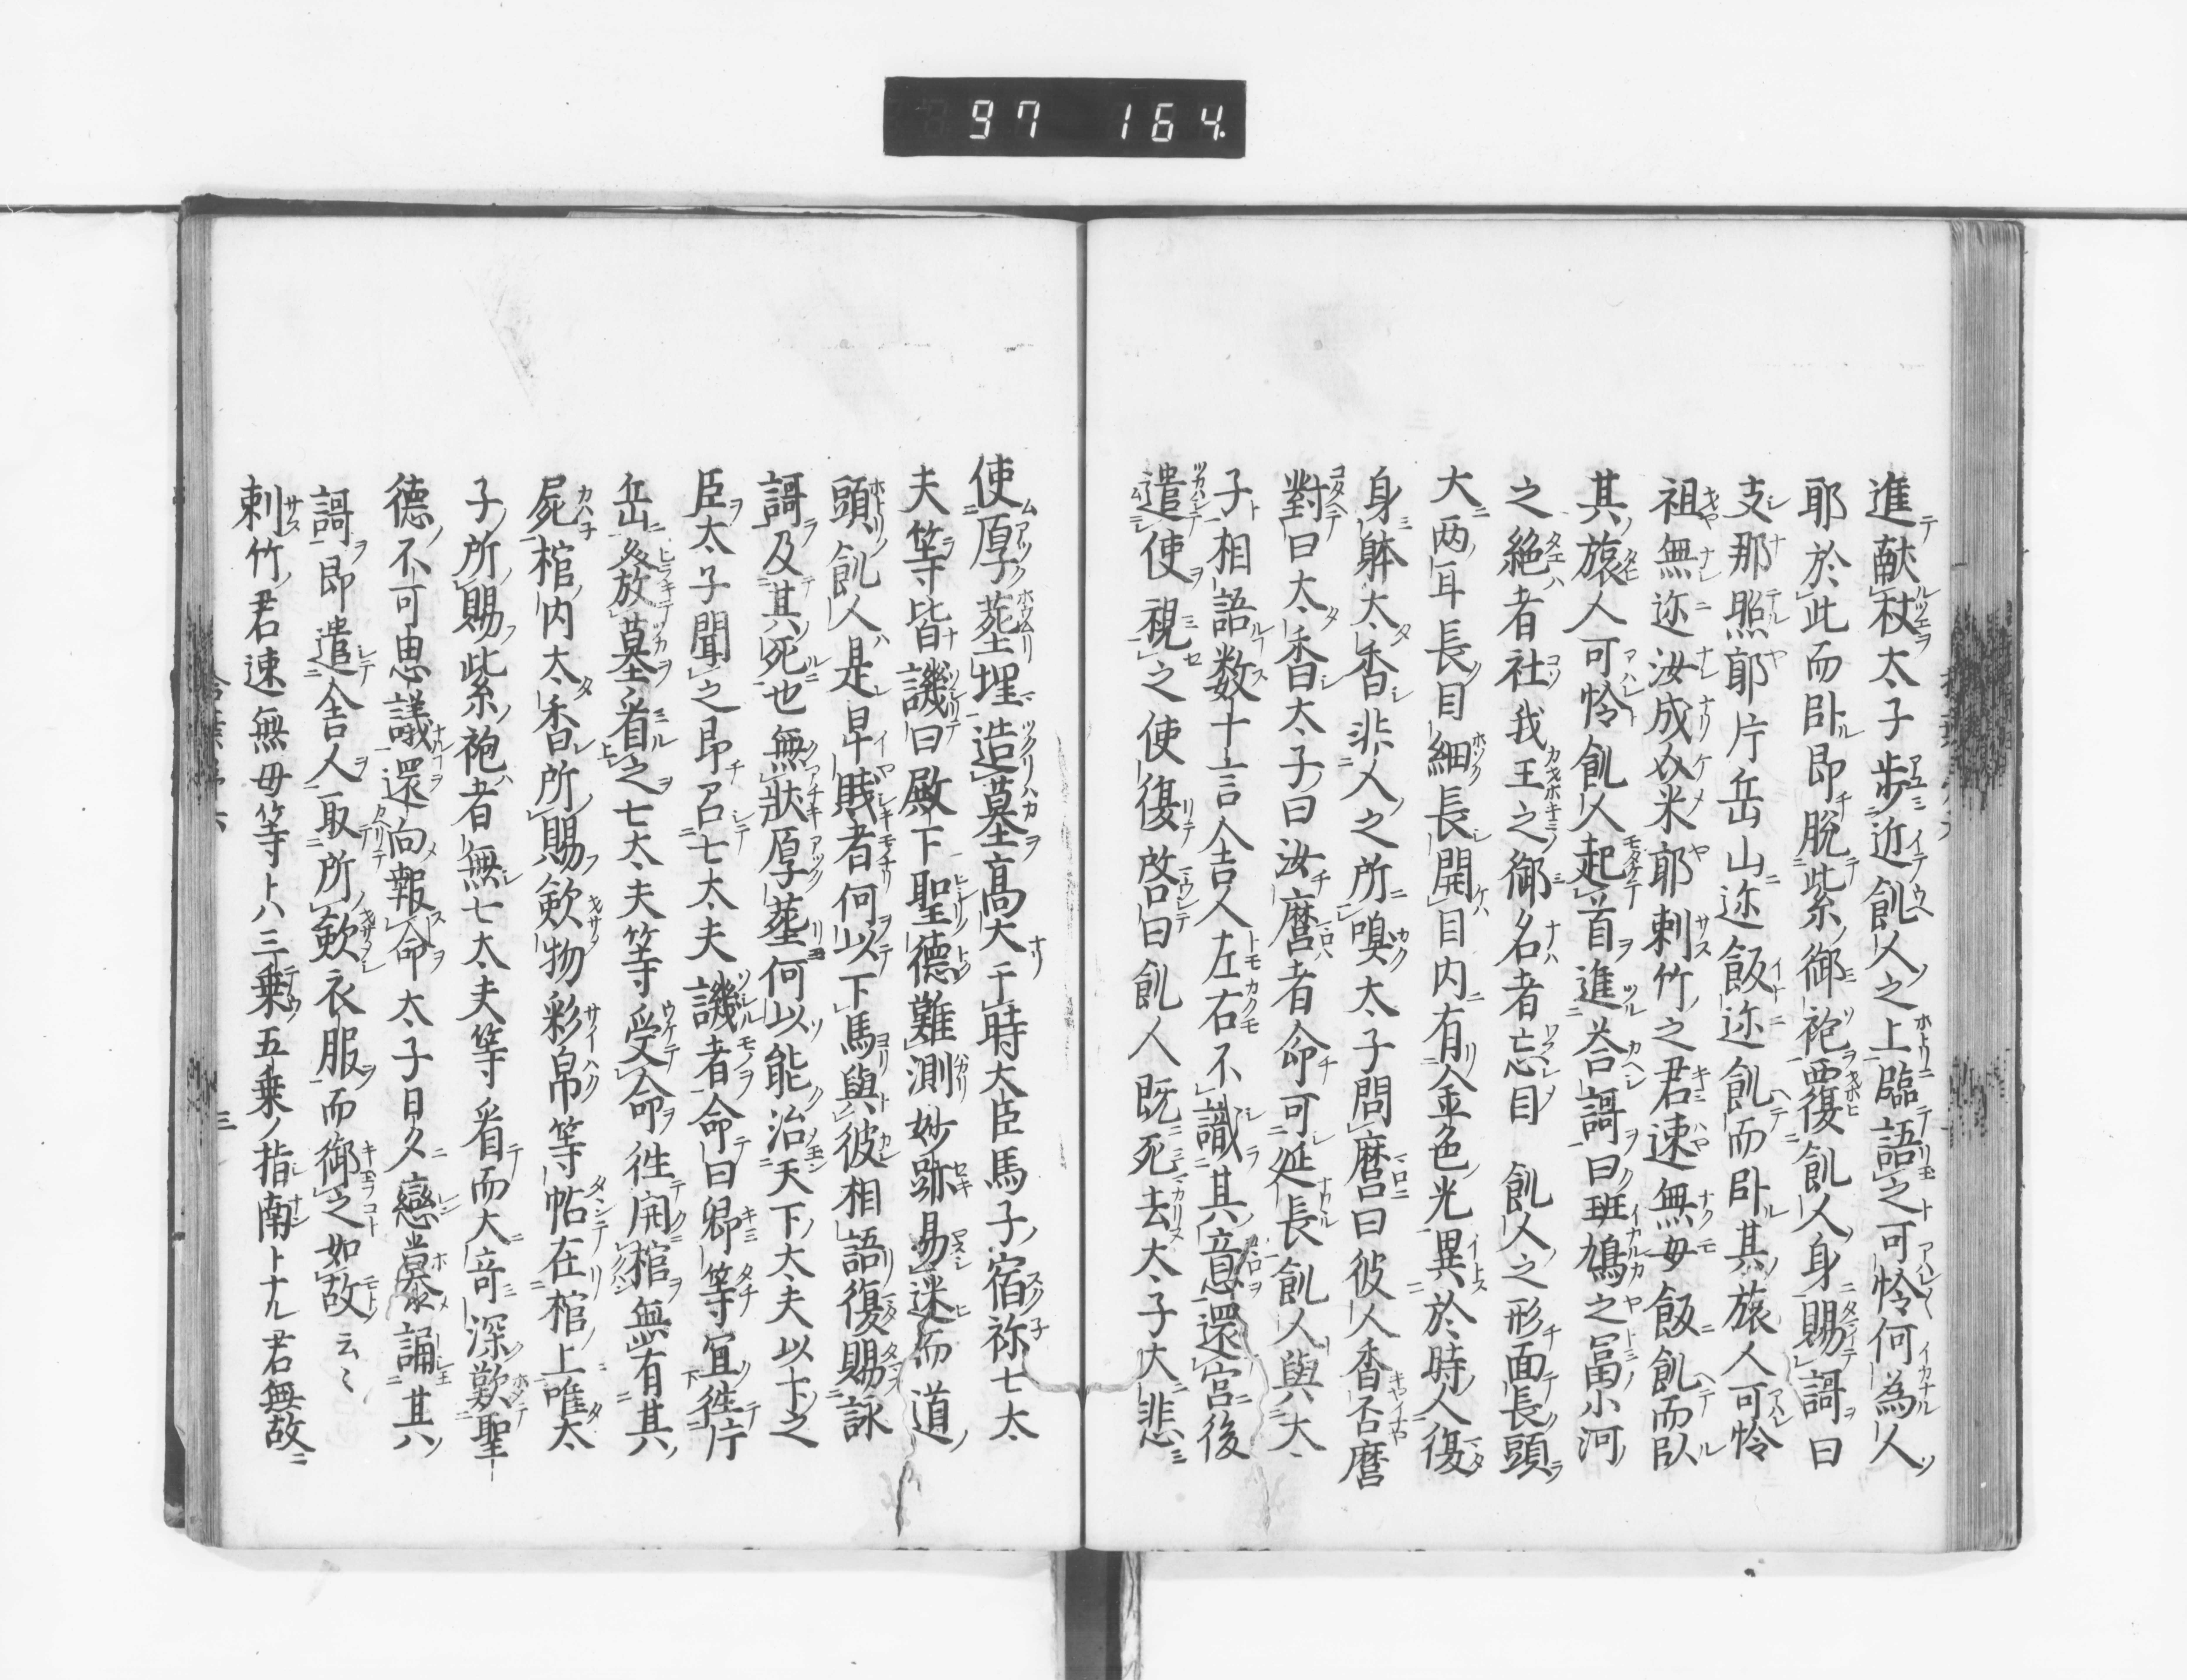 97 164
進献杖太子歩近飢人之上臨語之可怜何為人
耶於此而卧即脱紫御袍覆飢人身賜謌曰
支那照耶片岳山迩飯迩飢而卧其旅人可怜
祖無迩汝成介米耶刺竹之君速無母飯飢而臥
其旅人可怜飢人起首進荅謌曰班鳩之冨小河
之絶者社我王之御名者忘目 飢人之形面長頭
大両耳長目細長開目内有金色光異於時人復
身躰太香非人之所嗅太子問麿曰彼人香否麿
對曰太香太子曰汝麿者命可延長飢人與太
子相語数十言舎人左右不識其意還宮後
遣使視之使復啓曰飢人既死去太子大悲
使厚葬埋造墓高大于時大臣馬子宿祢七大
夫等皆譏曰殿下聖德難測妙跡易迷而道
頭飢人是卑賎者何以下馬與彼相語復賜詠
謌及其死也無狀厚葬何以能治天下大夫以下之
臣太子聞之即召七大夫譏者命曰卿等冝徃片
岳發墓看之七大夫等受命徃開棺無有其
屍棺内太香所賜斂物彩帛等帖在棺上唯太
子所賜紫袍者無七大夫等看而大竒深歎聖
德不可思議還向報命太子日夕戀慕誦其
謌即遣舎人取所斂衣服而御之如故云〻
刺竹ノ君速無母等トハ三乗五乗ノ指南トナル君無故ニ